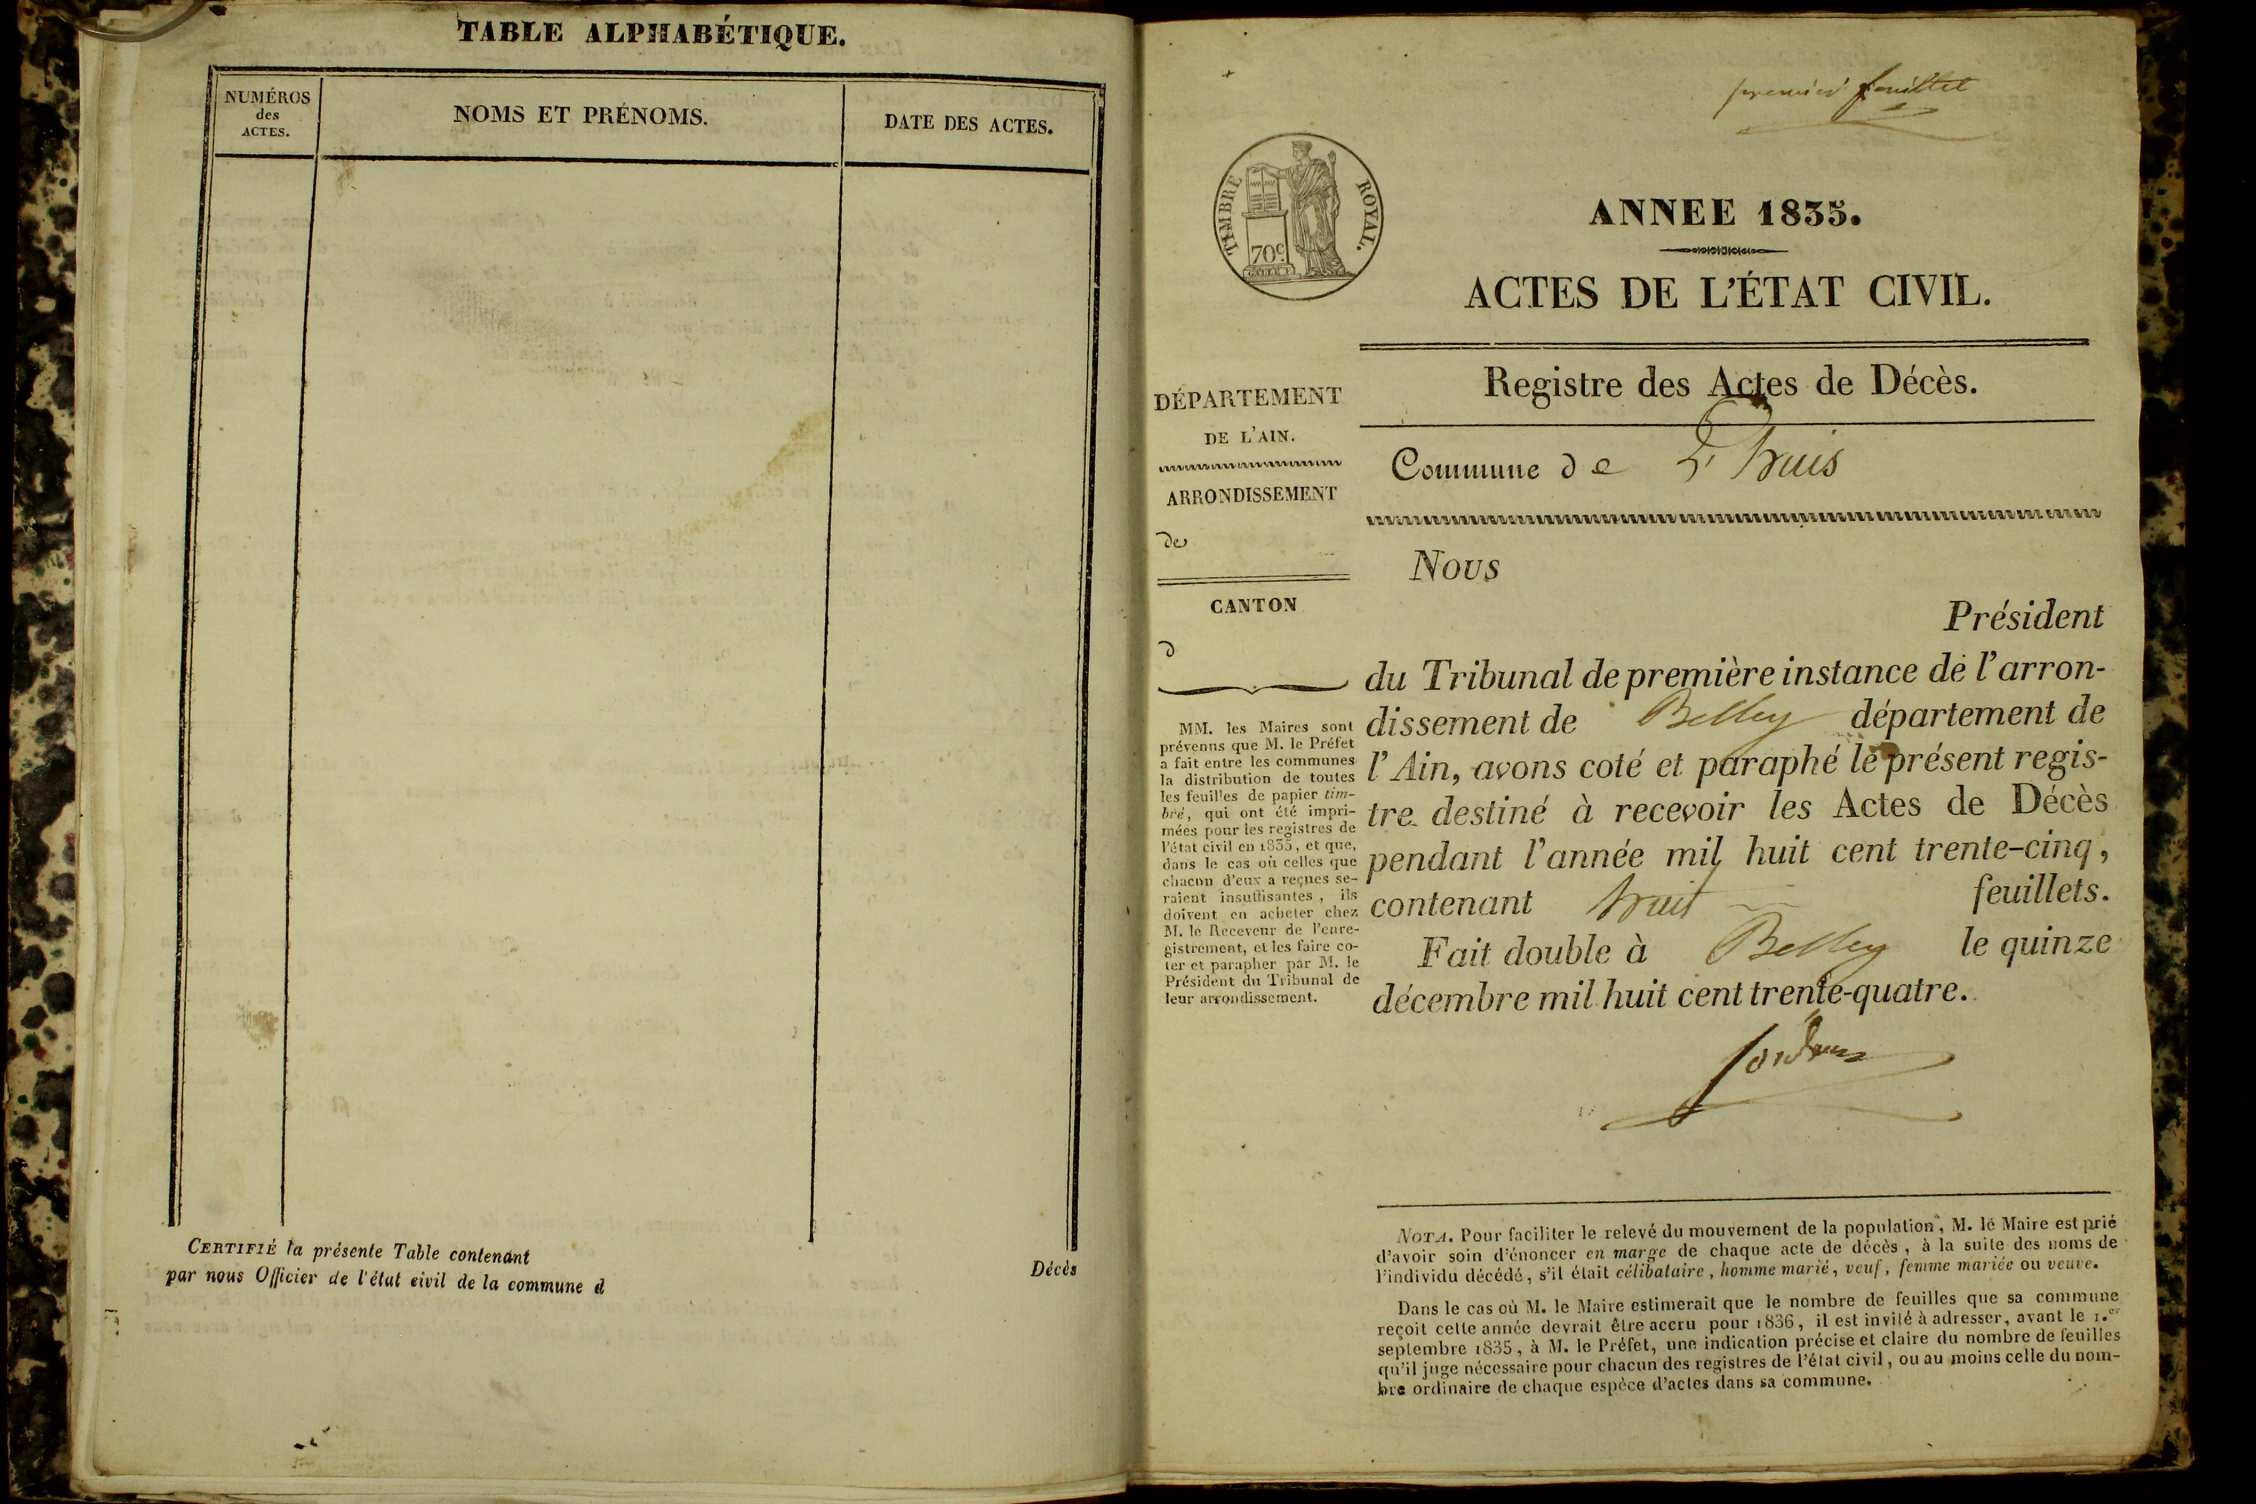 TABLE ALPHABÉTIQUE.
NUMÉROS
des
ACTES.
NOMS ET PRÉNOMS.
DATE DES ACTES.
CERTIFIÉ la présente Table contenant
Décès
par nous Officier de l'état civil de la commune d
premier feuillet
TIMBRE ROYAL.
70c
ANNEE 1835.
ACTES DE L'ÉTAT CIVIL.
Registre des Actes de Décès.
DÉPARTEMENT
DE L'AIN.
ARRONDISSEMENT
de
CANTON
d
MM. les Maires sont
prévenus que M. le Préfet
a fait entre les communes
la distribution de toutes
les feuilles de papier tim-
bré, qui ont été impri-
mées pour les registres de
l'état civil en 1835, et que,
dans le cas où celles que
chacun d'eux a reçues se-
raient insuffisantes, ils
doivent en acheter chez
M. le Receveur de l'enre-
gistrement, et les faire co-
ter et parapher par M. le
Président du Tribunal de
leur arrondissement.
Commune de
Nous
Président
du Tribunal de première instance de l'arron-
dissement de Belley département de
l'Ain, avons coté et paraphé le présent regis-
tre destiné à recevoir les Actes de Décès
pendant l'année mil huit cent trente-cinq,
contenant huit feuillets.
Fait double à Belley le quinze
décembre mil huit cent trente-quatre.
NOTA. Pour faciliter le relevé du mouvement de la population, M. le Maire est prié
d'avoir soin d'énoncer en marge de chaque acte de décès, à la suite des noms de
l'individu décédé, s'il était célibataire, homme marié, veuf, femme mariée ou veuve.
Dans le cas où M. le Maire estimerait que le nombre de feuilles que sa commune
reçoit cette année devrait être accru pour 1836, il est invité à adresser, avant le 1.er
septembre 1835, à M. le Préfet, une indication précise et claire du nombre de feuilles
qu'il juge nécessaire pour chacun des registres de l'état civil, ou au moins celle du nom-
bre ordinaire de chaque espèce d'actes dans sa commune.